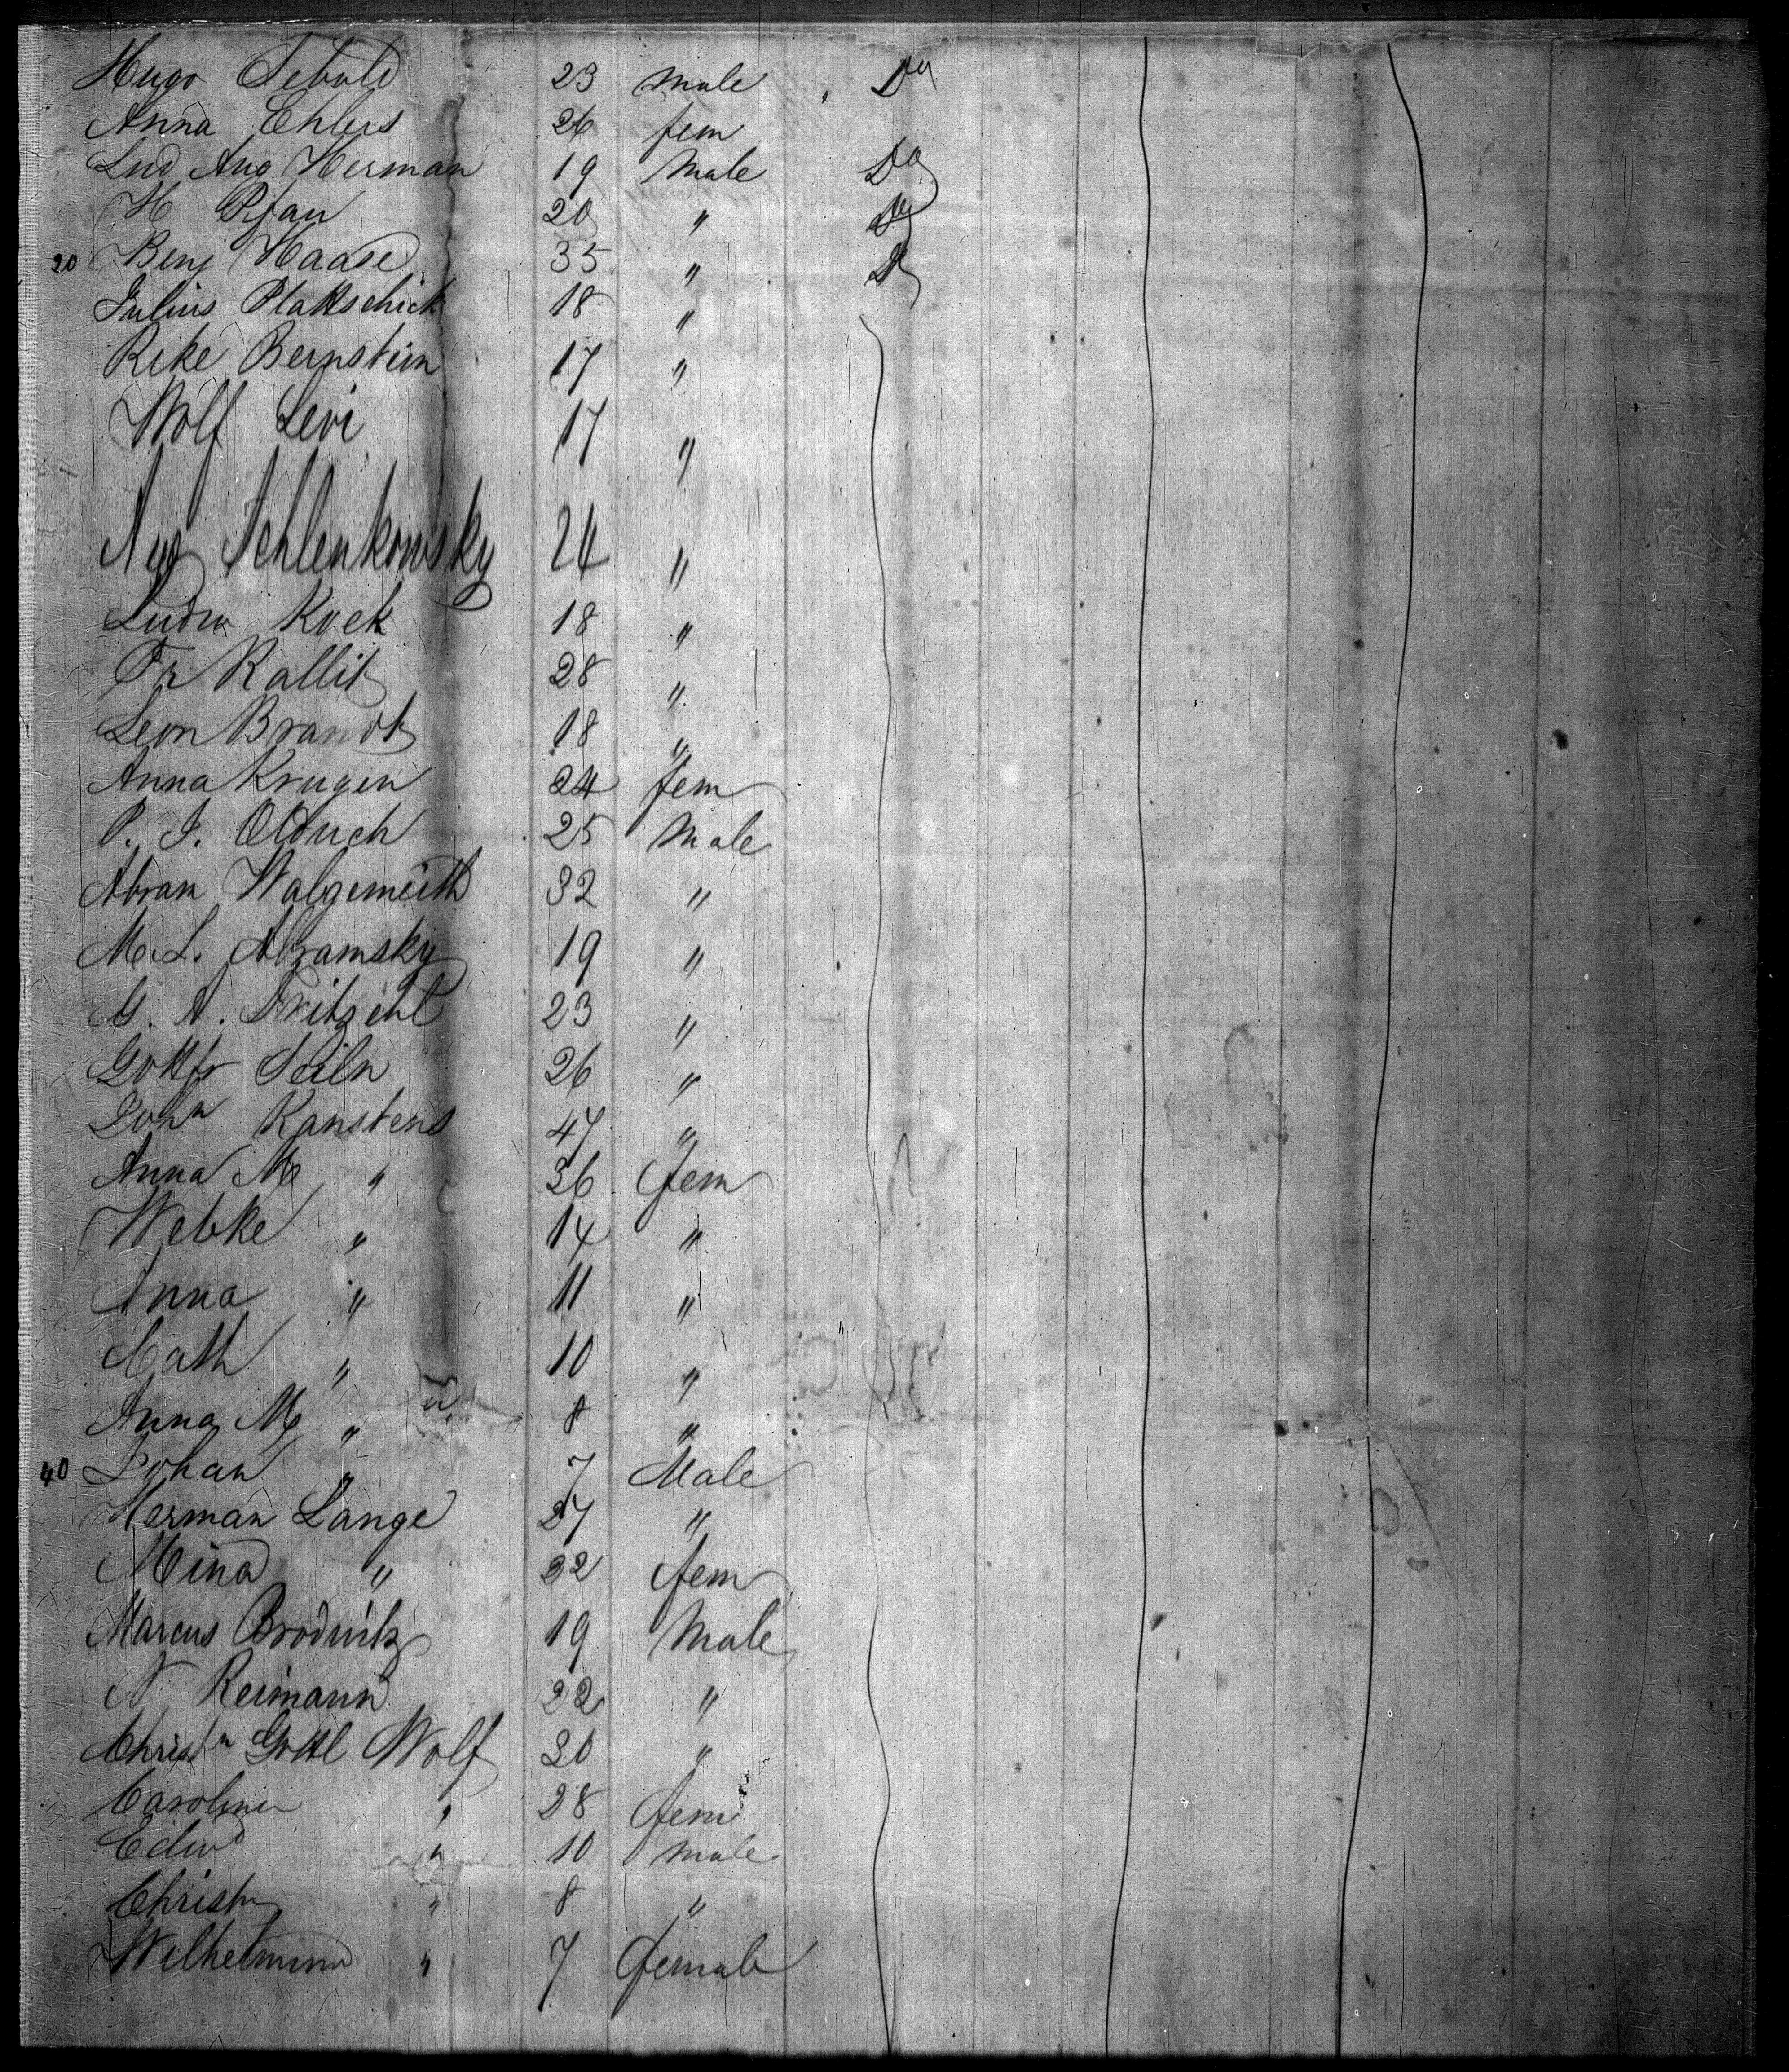 Hugo Sebald 23 male Do
Anna Ehlers 26 fem
Lud Aug Herman 19 Male Do
H Pfau 20 " Do
20 Benj Haase 35 " Do
Julius Plattschick 18 "
Reke Bernstein 17 "
Wolf Levi 17 "
Aug Schlenkowsky 24 "
Ludw Kock 18 "
Fr Kallit 28 "
Leon Brandt 18 "
Anna Krugen 24 fem
P. J. 25 Male
Abram Walgemuth 32 "
M. L. Abramsky 19 "
G. A. 23 "
Gottfr 26 "
John Karstens 47 "
Anna M " 36 fem
Webke " 14 "
Anna " 11 "
Cath " 10 "
Anna M " 8 "
40 Johan " 7 Male
Herman Lange 27 "
Mina " 22 fem
Marcus Brodnitz 19 Male
N Reimann 22 "
Christn Gottl Wolf 30 "
Caroline " 28 fem
Edwd " 10 male
Christn " 8 "
Wilhelmina " 7 female